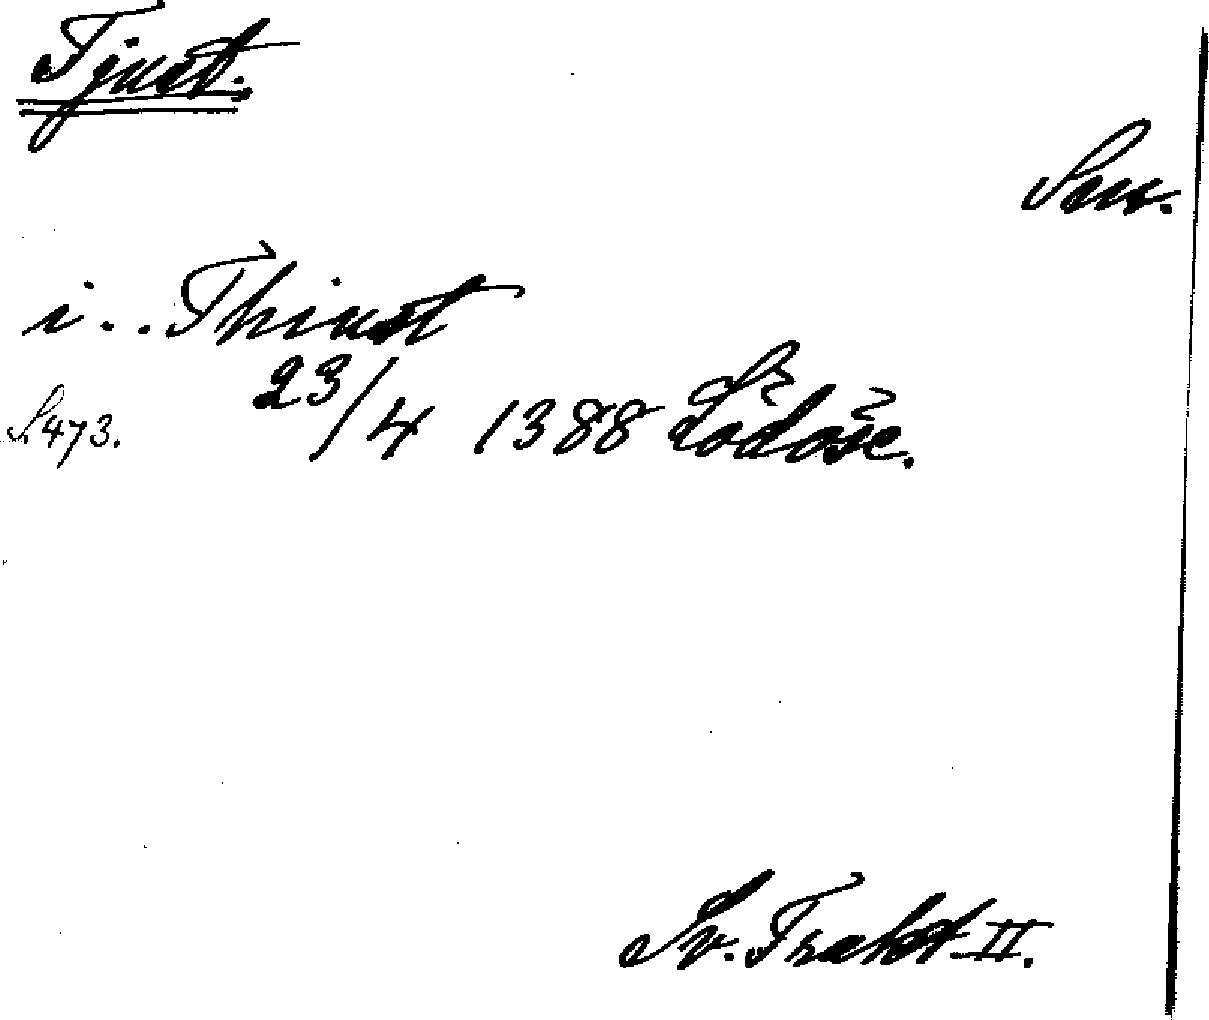 Tjust.
Sm.
i.. Thiust
S. 473. 23/4 1388 Lödöse.
Sv. Trakt. II.